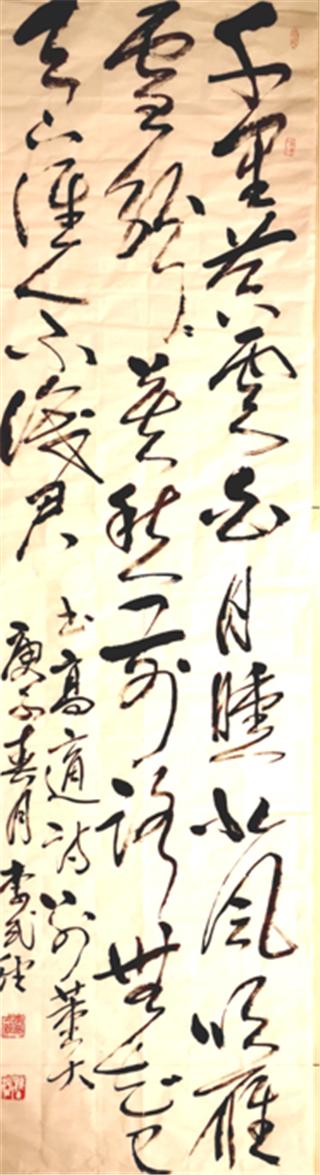 千里黃雲白日曛北風吹雁
雪紛々莫愁前路無知己
天下誰人不識君
书高適诗别董大
庚子春月李